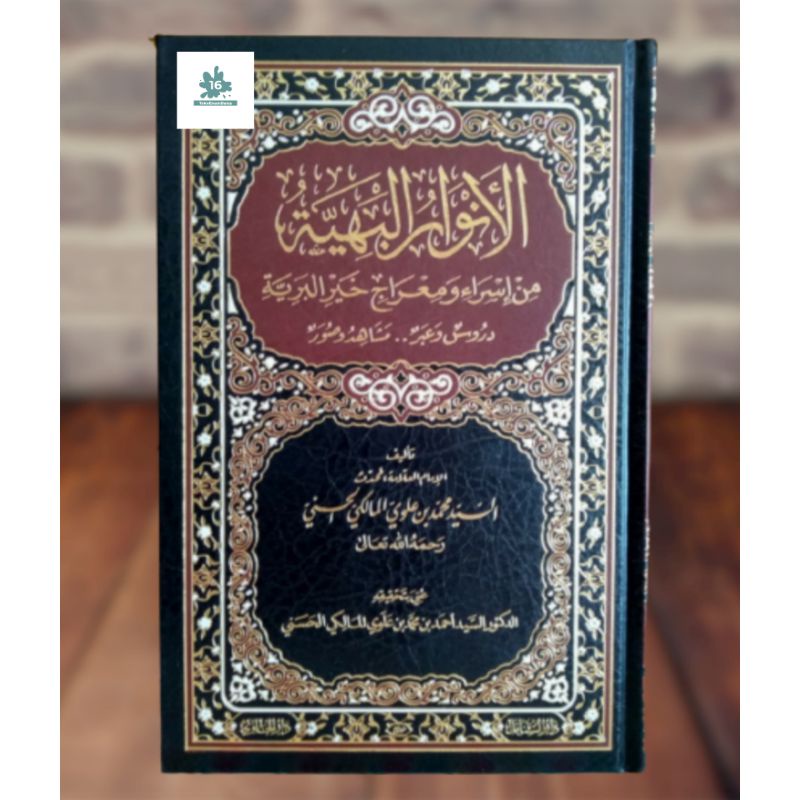 16
TokoEnamBelas
الأَنْوَارُ البَهِيَّةُ
مِنْ إِسْرَاءِ وَمِعْرَاجِ خَيْرِ البَرِيَّةِ
دُرُوسٌ وَعِبَرٌ . . مَشَاهِدُ وَصُوَرٌ
تأليف
الإمام العلامة المحدث
السيد محمد بن علوي المالكي الحسني
رحمه الله تعالى
عني بتحقيقه
الدكتور السيد أحمد بن محمد بن علوي المالكي الحسني